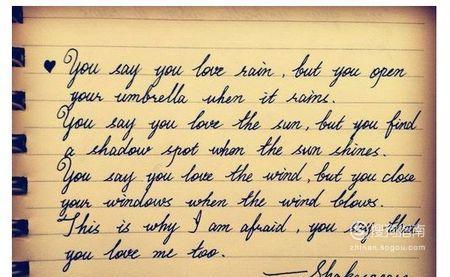 ♥ You say you love rain, but you open
your umbrella when it rains.
You say you love the sun, but you find
a shadow spot when the sun shines.
You say you love the wind, but you close
your windows when the wind blows.
This is why I am afraid, you say that
you love me too.
zhinan.sogou.com
— Shakespeare